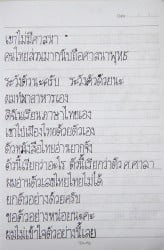 เขาไม่มีศาสนา
คนไทยส่วนมากนับถือศาสนาพุทธ
ระวังตัวนะครับ ระวังตัวด้วยนะ
ผมทำอาหารเอง
ดิฉันเรียนภาษาไทยเอง
เขาไปเมืองไทยด้วยตัวเอง
ตัวหนังสือไทยอ่านยากจัง
ตัวนี้เรียกว่าอะไร ตัวนี้เรียกว่าตัว ศ.ศาลา
ผมอ่านตัวเลขไทยไม่ได้
ยกตัวอย่างด้วยครับ
ขอตัวอย่างหน่อยนะคะ
ผมไม่เข้าใจตัวอย่างนี้เลย